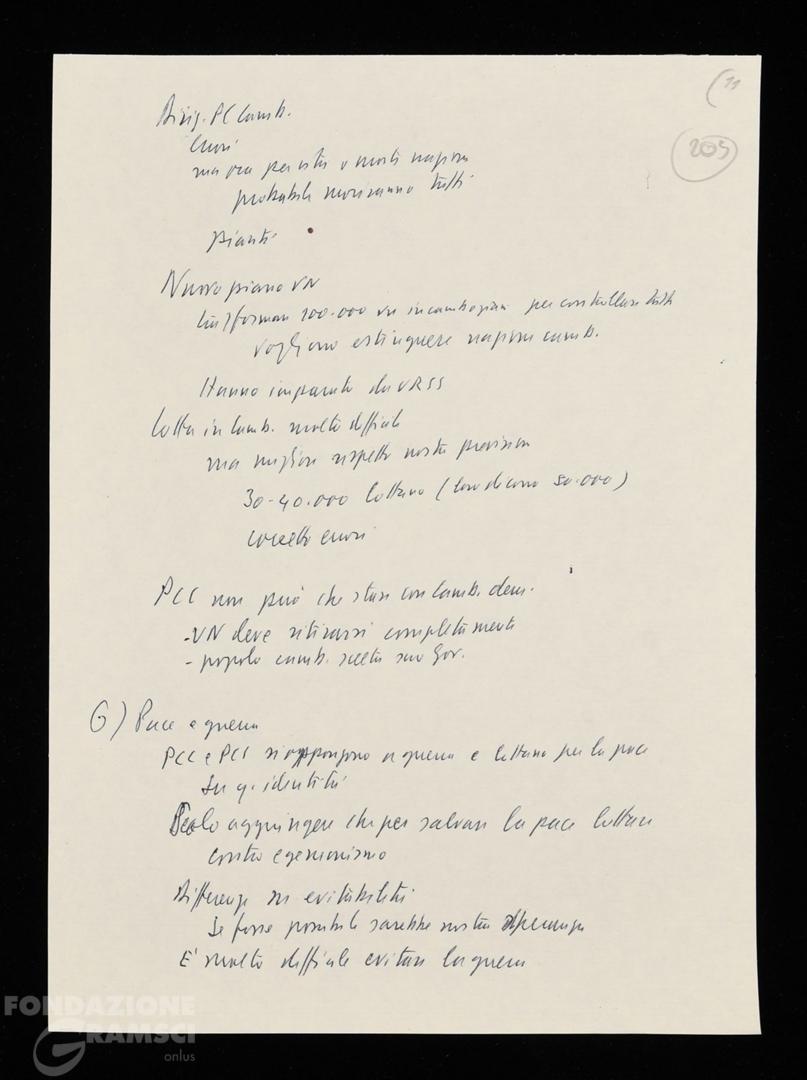 (11
203
Dirig. PC Camb.
Errori
ma ora per vita o morte nazione
probabile moriranno tutti
pianti
Nuovo piano VN
100.000 vn in cambogiani per controllare tutti
vogliono estinguere nazione camb.
Hanno imparato da URSS
Lotta in Camb. molto difficile
ma migliore rispetto nostre previsioni
30-40.000 lottano (loro dicono 50.000)
corretto errori
PCC non può che stare con Camb. dem.
- VN deve ritirarsi completamente
- popolo camb. scelta suo Gov.
6) Pace e guerra
PCC e PCI si oppongono a guerra e lottano per la pace
Su q. identità
Solo aggiungere che per salvare la pace lottare
contro egemonismo
Differenze su evitabilità
Se fosse possibile sarebbe nostra speranza
E' molto difficile evitare la guerra
FONDAZIONE
GRAMSCI
onlus